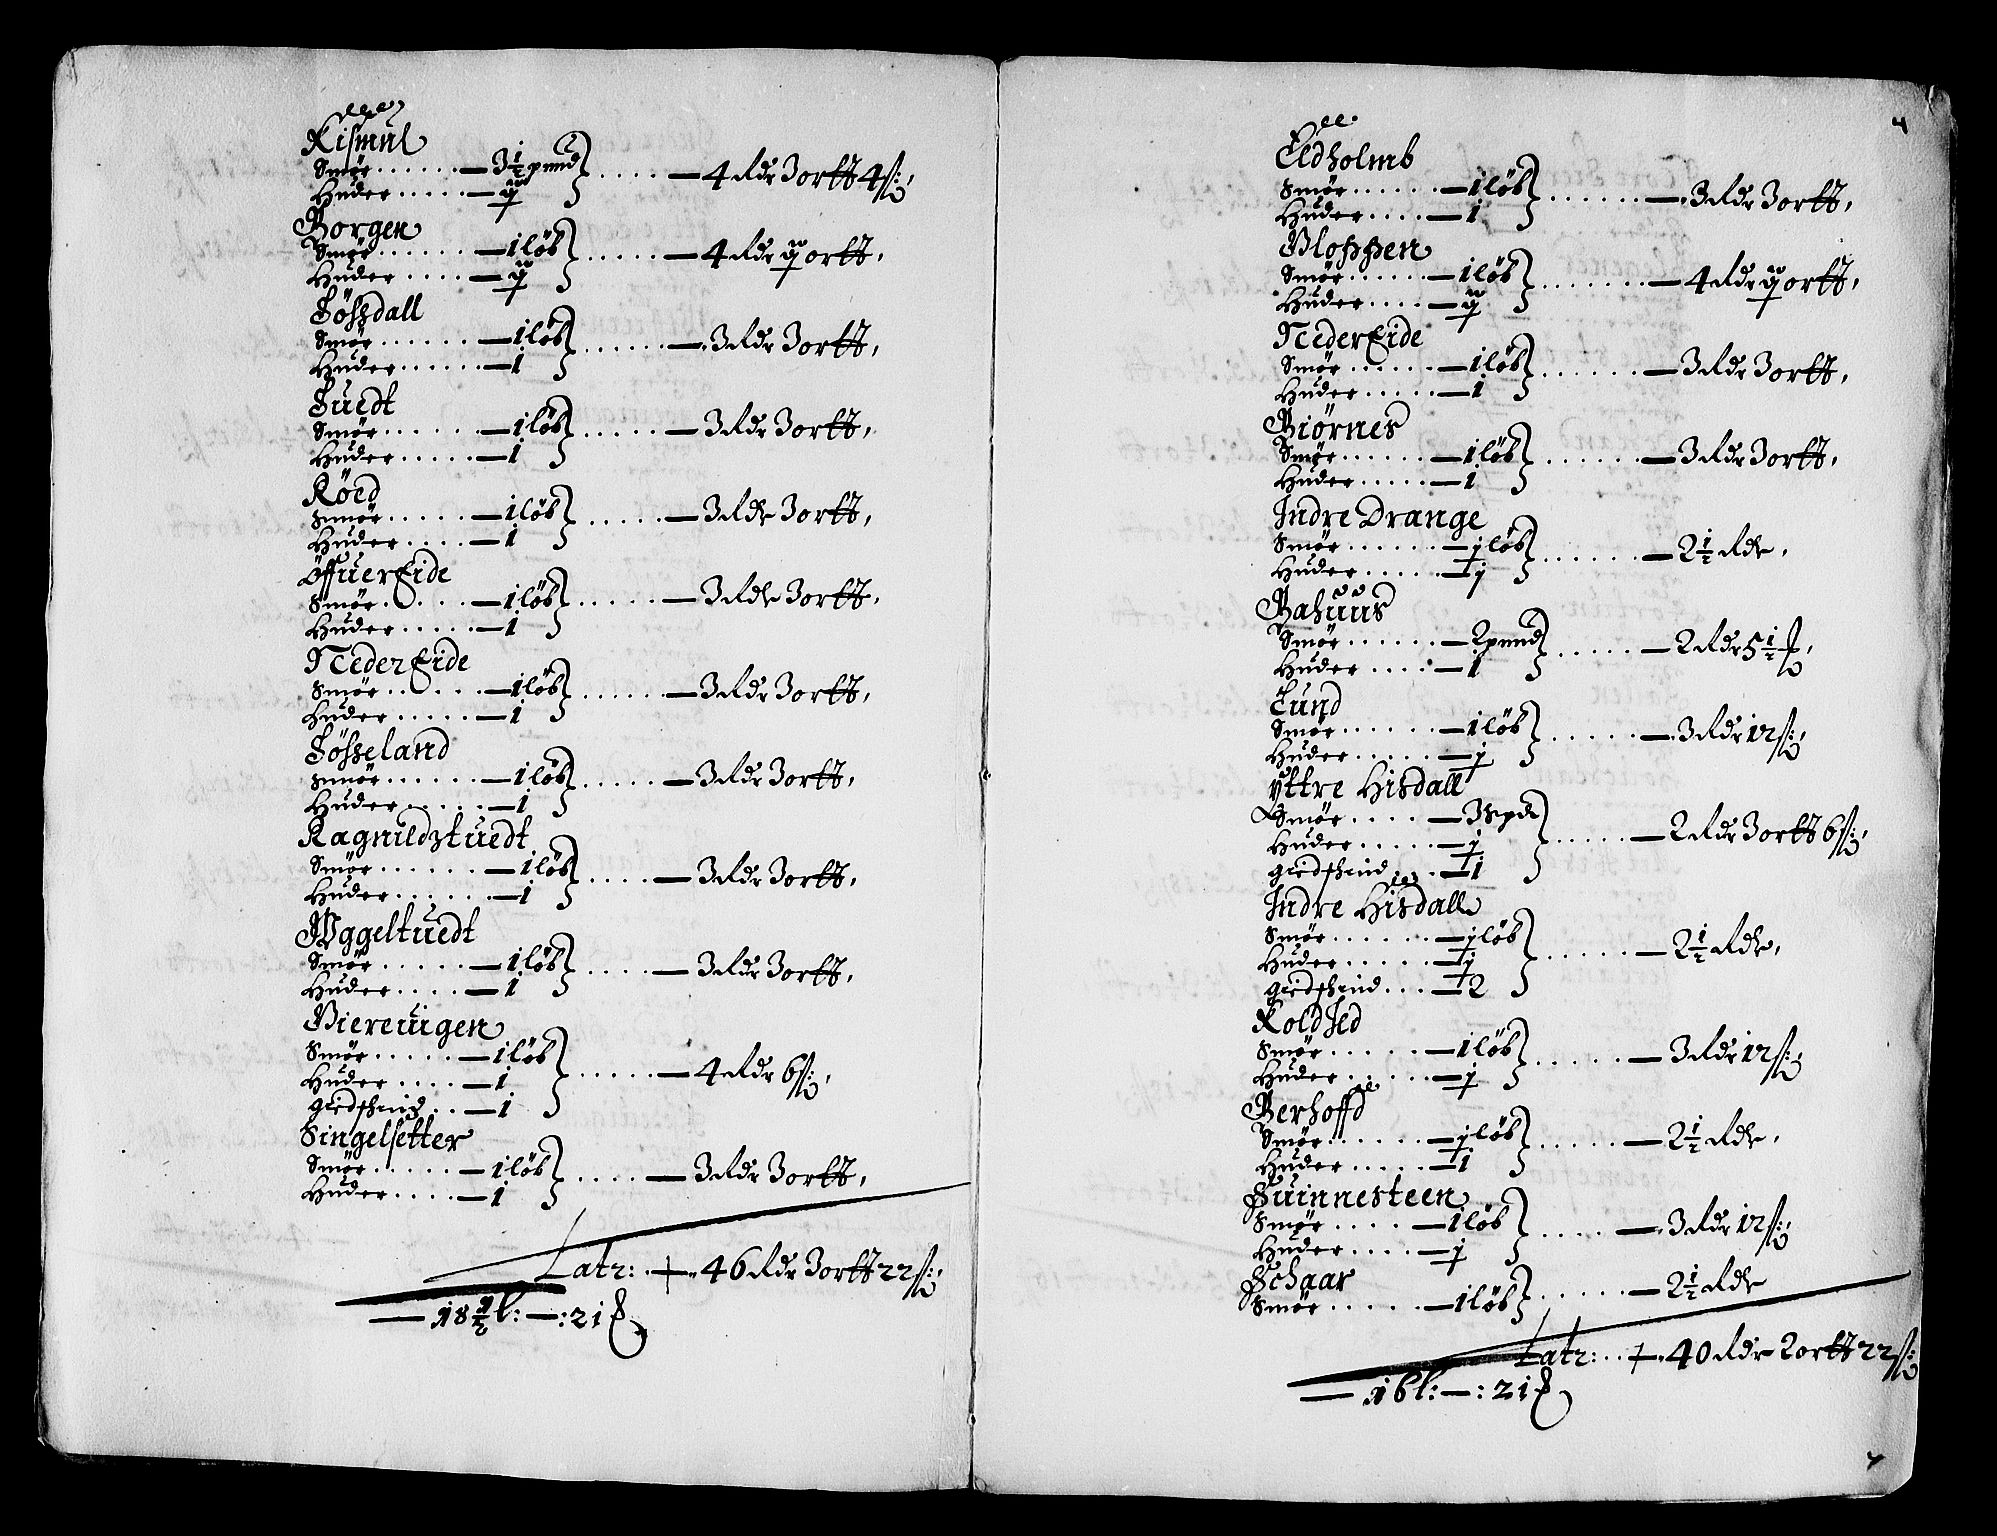 Rismul
Smör . . . . . . — 3½ pund
Huder . . . . . — ÿ } . . . . . — 4 Rdr 3 ortt 4 ß:
Borgen
Smör . . . . . . — 1 löb
Huder . . . . . — ÿ } . . . . . — 4 Rdr ÿ ortt,
Sössdall
Smör . . . . . . — 1 löb
Huder . . . . . . — 1 } . . . . . . — 3 Rdr 3 ortt,
Tuedt
Smör . . . . . . — 1 löb
Huder . . . . . — 1 } . . . . . — 3 Rdr 3 ortt,
Röed
Smör . . . . . — 1 löb
Huder . . . . — 1 } . . . . . — 3 Rdr 3 ortt,
Öffuer Eide
Smör . . . . . — 1 löb
Huder . . . . . — 1 } . . . . . — 3 Rdr 3 ortt,
Neder Eide
Smör . . . . . — 1 löb
Huder . . . . . — 1 } . . . . . . — 3 Rdr 3 ortt,
Sösseland
Smör . . . . . . — 1 löb
Huder . . . . . — 1 } . . . . . — 3 Rdr 3 ortt,
Ragnildztuedt
Smör . . . . . . — 1 löb
Huder . . . . . . — 1 } . . . . — 3 Rdr 3 ortt,
Myggeltuedt
Smör . . . . . — 1 löb
Huder . . . . — 1 } . . . . — 3 Rdr 3 ortt,
Viereuigen
Smör . . . . . — 1 löb
Huder . . . . — 1
giedschind . . — 1 } . . . . . — 4 Rdr 6 ß:
Singelsetter
Smör . . . . . — 1 löb
Huder . . . . — 1 } . . . . — 3 Rdr 3 ortt,
Latr: . — 46 Rdr 3 ortt 22 ß:
— 18½ l: — : 21 ß
4
Eldholmb
Smör . . . . . . — 1 löb
Huder . . . . — 1 } . . . . . . — 3 Rdr 3 ortt,
Bloppen
Smör . . . . . . — 1 löb
Huder . . . . — ÿ } . . . . . . . — 4 Rdr ÿ ortt,
Neder Eide
Smör . . . . . . — 1 löb
Huder . . . . . — 1 } . . . . . . — 3 Rdr 3 ortt,
Biörnes
Smör . . . . . . — 1 löb
Huder . . . . . — 1 } . . . . . . — 3 Rdr 3 ortt,
Indre Drange
Smör . . . . . . — j löb
Huder . . . . . — j } . . . . . . — 2½ Rdr,
Bahuus
Smör . . . . . . — 2 pund
Huder . . . . — 1 } . . . . . — 2 Rdr 5½ ß,
Lund
Smör . . . . . . — 1 löb
Huder . . . . . — j } . . . . . . — 3 Rdr 12 ß:
Yttre Hisdall
Smör . . . . — 3 spd
Huder . . . . . — j
giedschind . . . — 1 } . . . . . — 2 Rdr 3 ortt 6 ß:
Indre Hisdall
Smör . . . . . . — j löb
Huder . . . . . — j
giedschind . . . — 2 } . . . . . — 2½ Rdr,
Koldsed
Smör . . . . . . — 1 löb
Huder . . . . . — j } . . . . . — 3 Rdr 12 ß:
Berhoffd
Smör . . . . . . — j löb
Huder . . . . . — 1 } . . . . . — 2½ Rdr,
Suinnesteen
Smör . . . . — 1 löb
Huder . . . . — j } . . . . — 3 Rdr 12 ß:
Schaar
Smör . . . . . — 1 löb } . . . . . — 2½ Rdr
Latr: . . — 40 Rdr 2 ortt 22 ß:
— 16 l: — : 21 ß